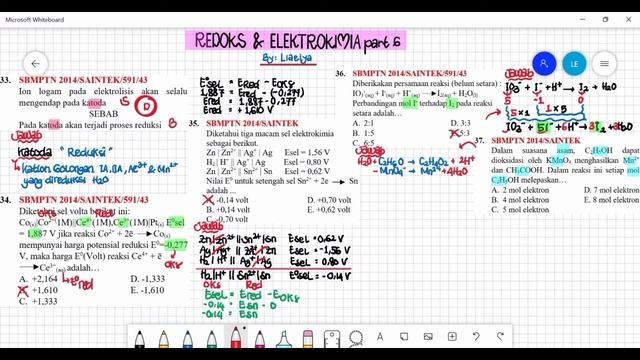 Microsoft Whiteboard
REDOKS & ELEKTROKIMIA part 6
By: Liaelya
LE
33. SBMPTN 2014/SAINTEK/591/43
Ion logam pada elektrolisis akan selalu
mengendap pada katoda S
D
SEBAB
Pada katoda akan terjadi proses reduksi B
Jawab
Katoda "Reduksi"
Kation Golongan IA, IIA, Al3+ & Mn2+
yang direduksi H2O
34. SBMPTN 2014/SAINTEK/591/43
Diketahui sel volta berikut ini:
Oks Red
Co(s)|Co2+(1M)||Ce4+(1M),Ce3+(1M)|Pt(s) E0sel
= 1,887 V jika reaksi Co2+ + 2ē → Co(s)
mempunyai harga potensial reduksi E0=-0,277
V, maka harga E0(Volt) reaksi Ce4+ + ē
Oks
→Ce3+(aq) adalah…
A. +2,164
E°red
D. -1,333
B. +1,610
E. -1,610
C. +1,333
E°sel = Ered - Eoks
1,887 = Ered - (-0,277)
Ered = 1,887 - 0,277
Ered = +1,610 V
35. SBMPTN 2014/SAINTEK
Diketahui tiga macam sel elektrokimia
sebagai berikut.
Zn | Zn2+ || Ag+ | Ag Esel = 1,56 V
H2 | H+ || Ag+ | Ag Esel = 0,80 V
Zn | Zn2+ || Sn2+ | Sn Esel = 0,62 V
Nilai E0 untuk setengah sel Sn2+ + 2e → Sn
adalah ...
A. -0,14 volt D. +0,70 volt
B. +0,14 volt E. +0,62 volt
C. -0,70 volt
Jawab
Zn|Zn2+||Sn2+|Sn Esel = 0,62 V
Ag|Ag+||Zn2+|Zn Esel = -1,56 V
H2|H+||Ag+|Ag Esel = 0,80 V
H2|H+||Sn2+|Sn E°sel = -0,14 V
Oks Red
Esel = Ered - Eoks
-0,14 = Esn - 0
-0,14 = Esn
36. SBMPTN 2014/SAINTEK/591/43
Diberikan persamaan reaksi (belum setara) :
IO3-(aq) + I-(aq) + H+(aq) → I2(aq) + H2O(l)
Perbandingan mol I- terhadap I2 pada reaksi
setara adalah…
A. 2:1 D. 3:3
B. 1:5 E. 5:3
C. 6:5
Jawab
IO3- + I- + H+ → I2 + H2O
5 -1 0
5 x 1 1 x 5
IO3- + 5I- + 6H+ → 3I2 + 3H2O
37. SBMPTN 2014/SAINTEK
Dalam suasana asam, C2H5OH dapat
dioksidasi oleh KMnO4 menghasilkan Mn2+
dan CH3COOH. Dalam reaksi ini setiap mol
C2H5OH melepaskan…
A. 2 mol elektron D. 7 mol elektron
B. 4 mol elektron E. 8 mol elektron
C. 5 mol elektron